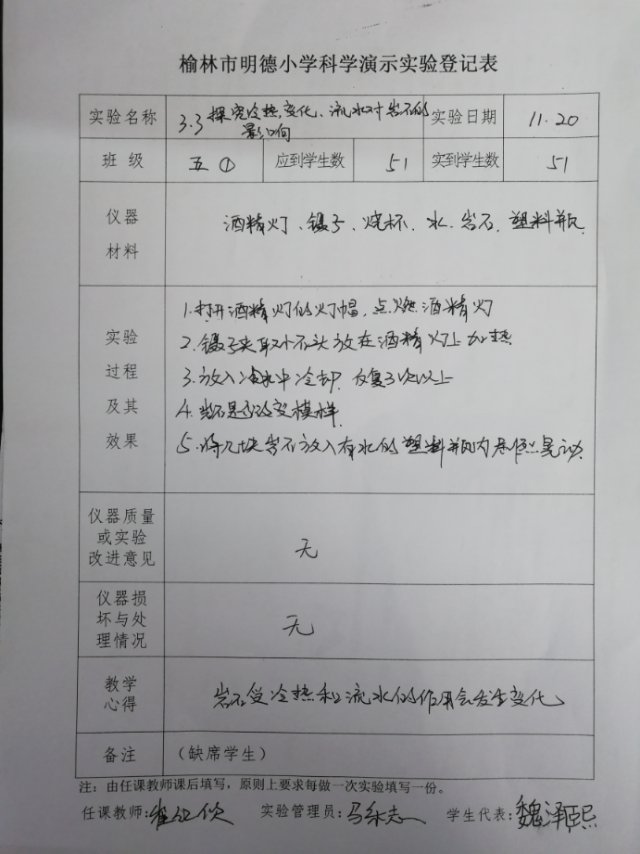 榆林市明德小学科学演示实验登记表
实验名称 3.3 探究冷热变化、流水对岩石的影响 实验日期 11.20
班 级 五① 应到学生数 51 实到学生数 51
仪器材料 酒精灯、镊子、烧杯、水、岩石、塑料瓶
实验过程及其效果
1.打开酒精灯的灯帽,点燃酒精灯
2.镊子夹取小石头放在酒精灯上加热
3.放入冷水中冷却,反复3次以上
4.岩石是否改变模样.
5.将几块岩石放入有水的塑料瓶内 晃动.
仪器质量或实验改进意见 无
仪器损坏与处理情况 无
教学心得 岩石受冷热和流水的作用会发生变化
备注 (缺席学生)
注:由任课教师课后填写,原则上要求每做一次实验填写一份。
任课教师: 实验管理员: 学生代表:魏泽熙